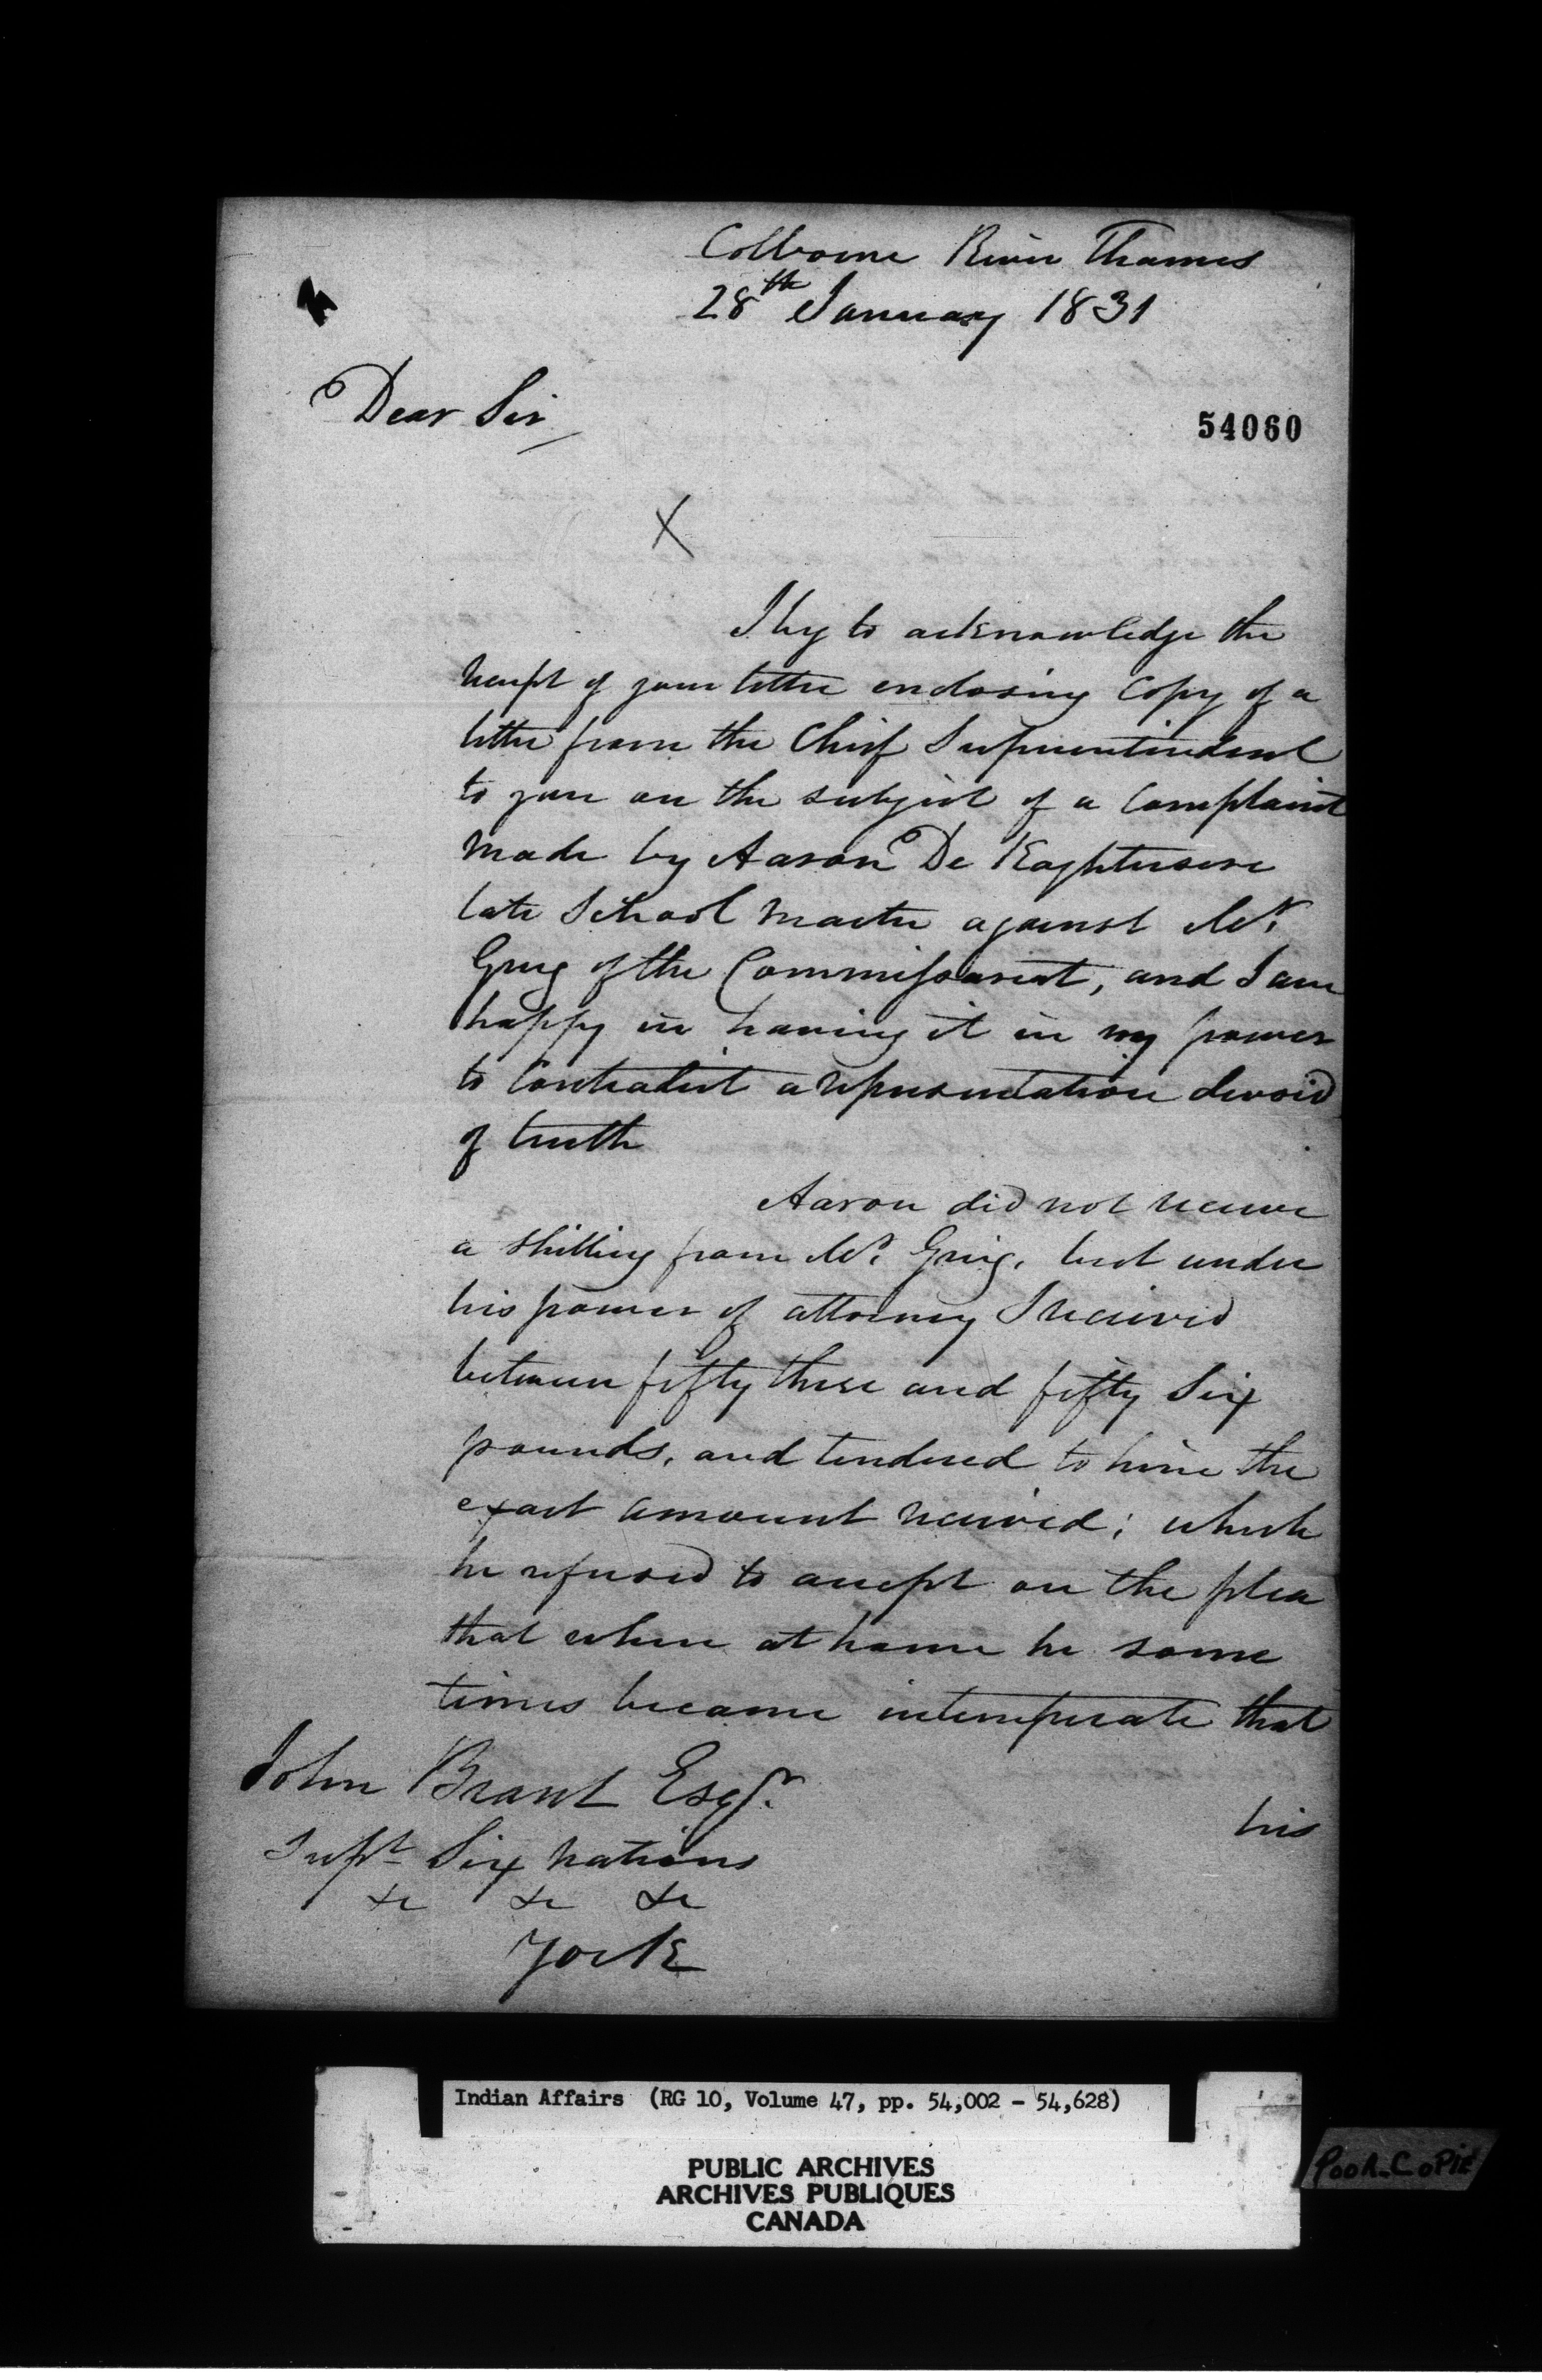 Colborne River Thames
28th January 1831
Dear Sir
54060
X
I beg to acknowledge the
receipt of your letter enclosing Copy of a
letter from the Chief Superintendent
to you on the subject of a Complaint
made by Aaron De
late School Master against Mr.
Greig of the Commissariat, and I am
happy in having it in my power
to Contradict a representation devoid
of truth
Aaron did not receive
a shilling from Mr. Greig, but under
his power of attorney I received
between fifty three and fifty Six
pounds, and tendered to him the
exact amount received; which
he refused to accept on the plea
that when at home he some
times became intemperate that
his
John Brant Esqr.
Supt Six Nations
&c &c &c
York
Indian Affairs (RG 10, Volume 47, pp. 54,002 - 54,628)
PUBLIC ARCHIVES
ARCHIVES PUBLIQUES
CANADA
POOR COPIE